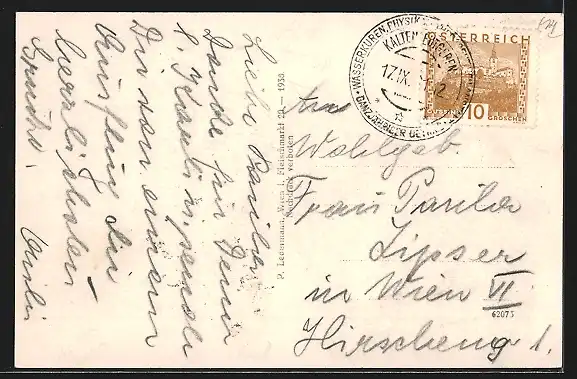 Liebe Paula
Danke für Deine
Karte u. sende
Dir von einem
Ausflug die
herzlichsten
Grüsse.
P. Ledermann, Wien I. Fleischmarkt 20. — 1930
Nachdruck verboten
WASSERKUREN, PHYSIK
KALTENLEUTGEBEN
17.IX.
GANZJÄHRIGER BETRIEB
ÖSTERREICH
10
GROSCHEN
An
Wohlgeb.
Frau Paula
Lipser
in Wien VI
62075
Hirscheng 1.